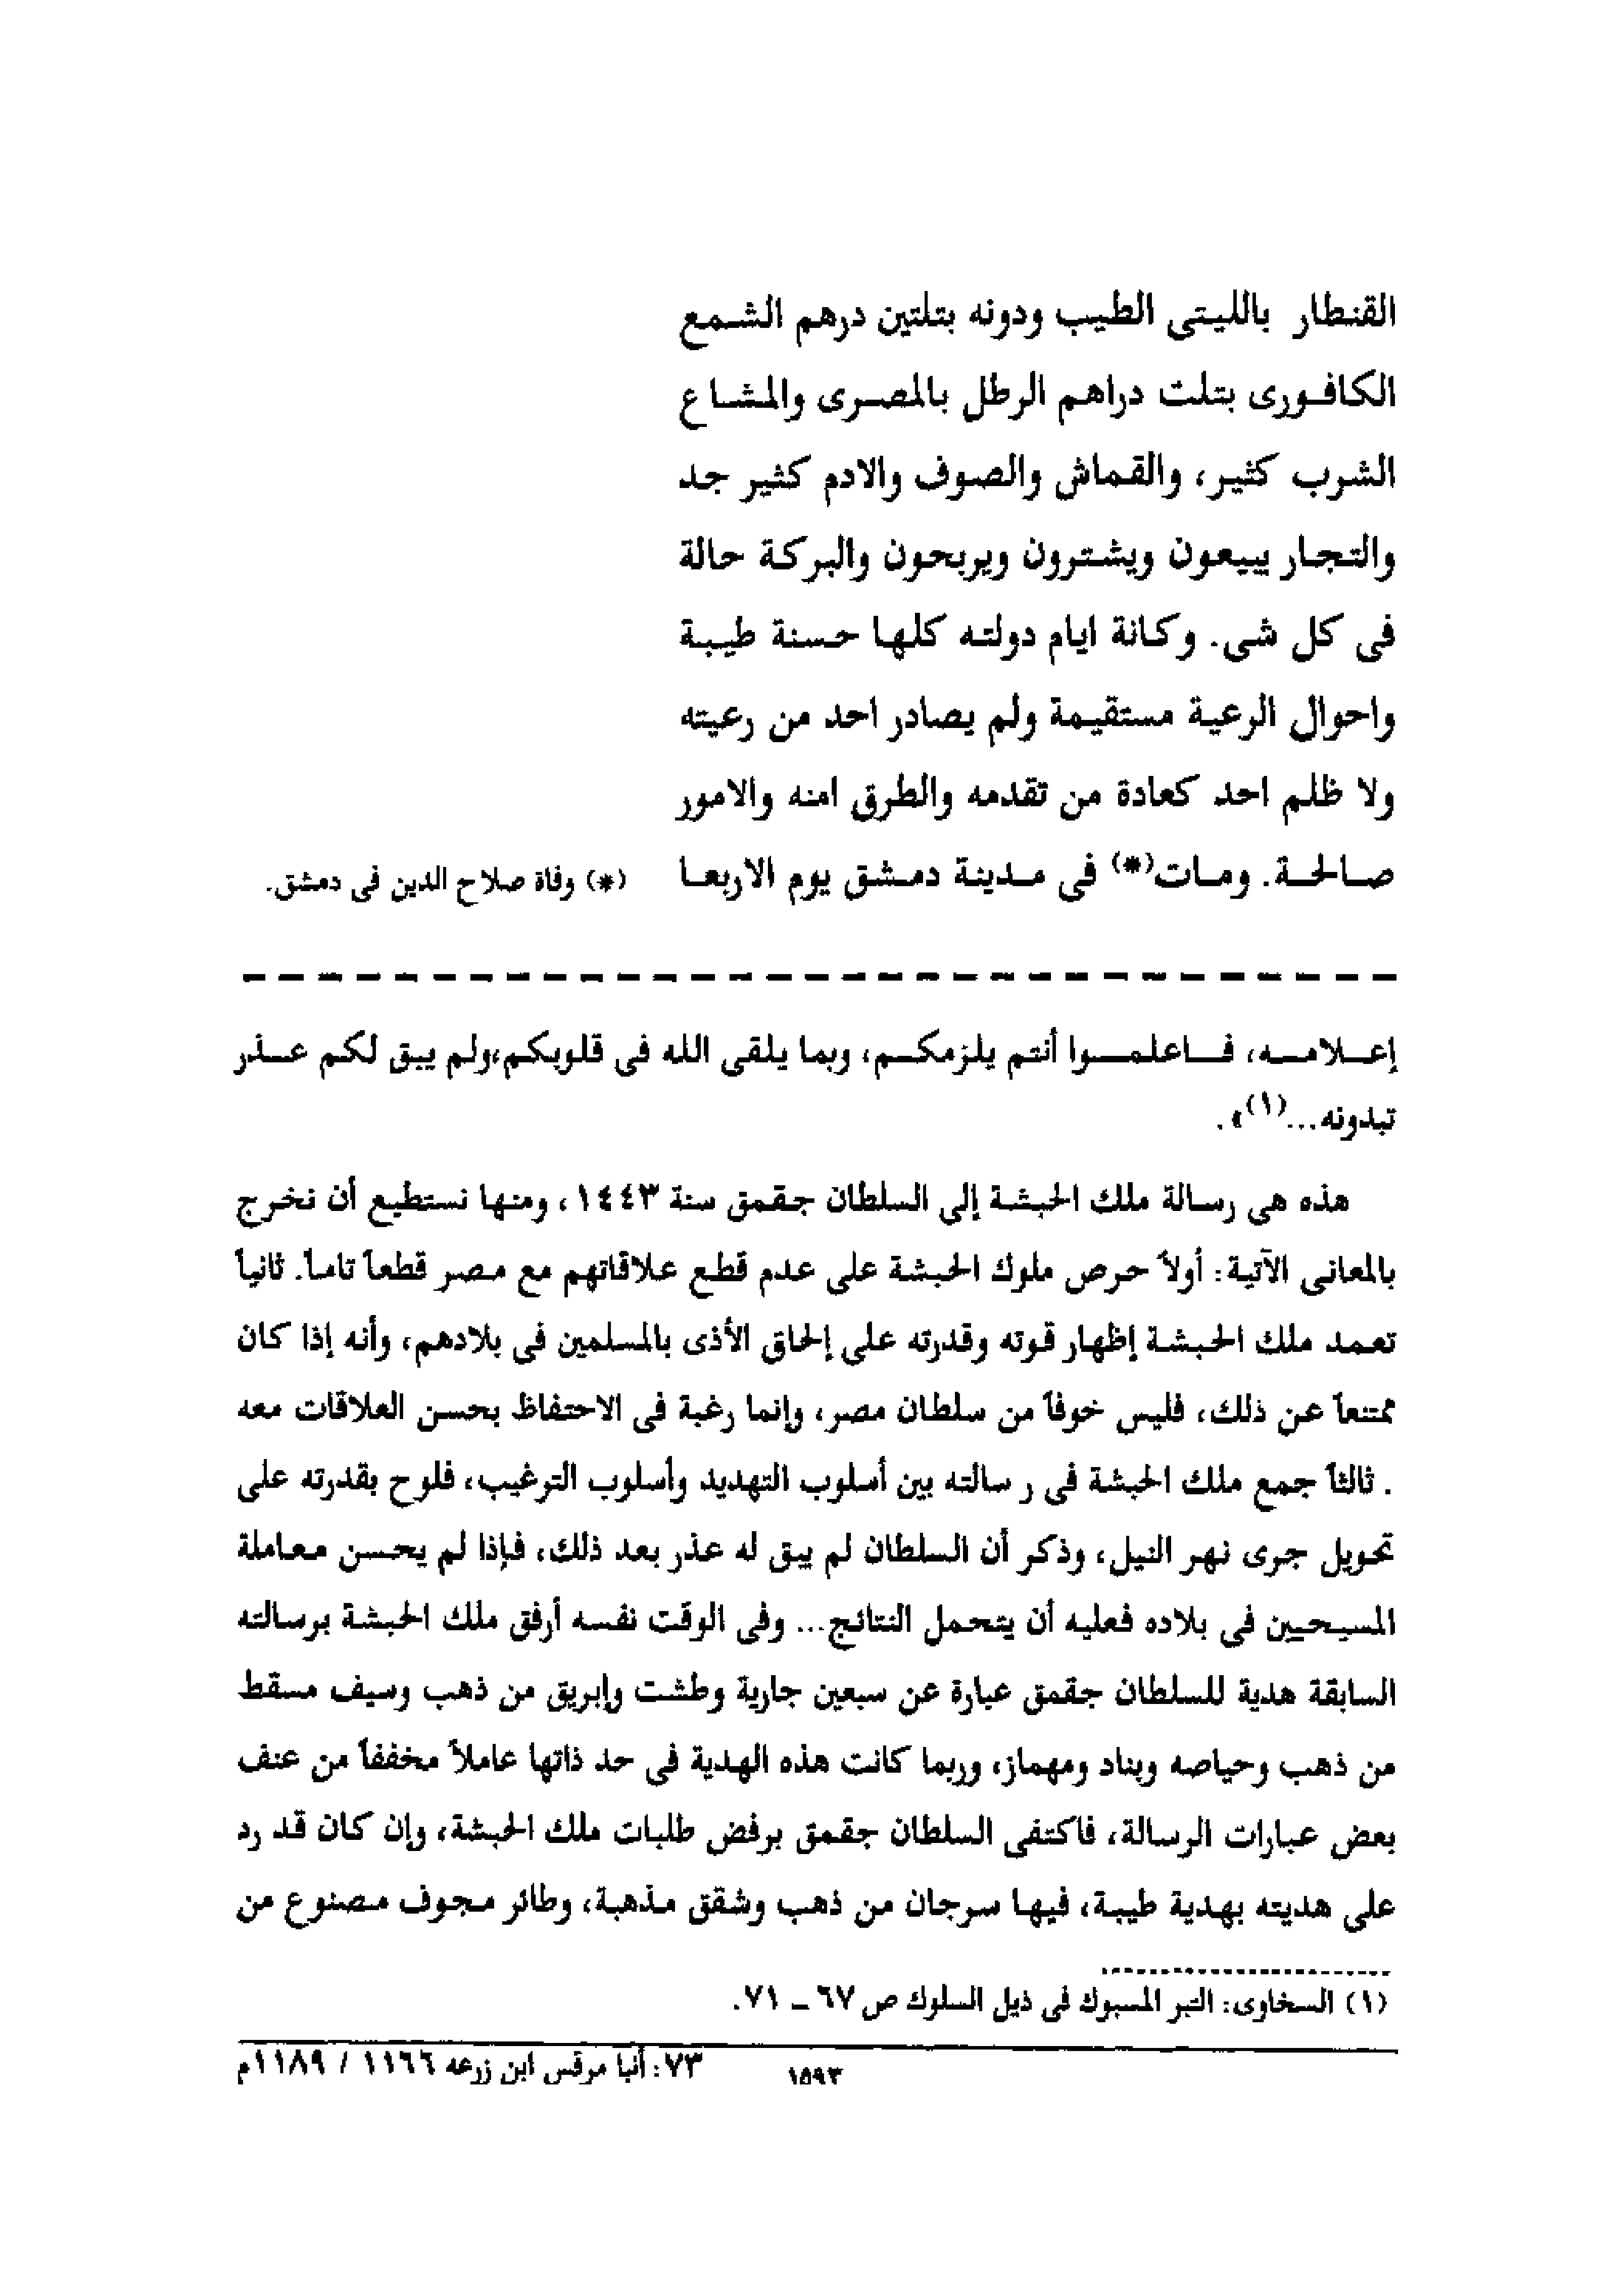 القنطار بالليتى الطيب ودونه بتلتين درهم الشمع
الكافورى بتلت دراهم الرطل بالمصرى والمشاع
الشرب كثير، والقماش والصوف والادم كثير جد
والتجار يبيعون ويشترون ويربحون والبركة حالة
فى كل شى. وكانة ايام دولته كلها حسنة طيبة
واحوال الرعية مستقيمة ولم يصادر احد من رعيته
ولا ظلم احد كعادة من تقدمه والطرق امنه والامور
صالحة. ومات(*) فى مدينة دمشق يوم الاربعا
(*) وفاة صلاح الدين فى دمشق.
إعلامه، فاعلموا أنتم يلزمكم، وبما يلقى الله فى قلوبكم،ولم يبق لكم عذر
تبدونه...(١)».
هذه هى رسالة ملك الحبشة إلى السلطان جقمق سنة ١٤٤٣، ومنها نستطيع أن نخرج
بالمعانى الآتية: أولاً حرص ملوك الحبشة على عدم قطع علاقاتهم مع مصر قطعاً تاماً. ثانياً
تعمد ملك الحبشة إظهار قوته وقدرته على إلحاق الأذى بالمسلمين فى بلادهم، وأنه إذا كان
ممتنعاً عن ذلك، فليس خوفاً من سلطان مصر، وإنما رغبة فى الاحتفاظ بحسن العلاقات معه
. ثالثاً جمع ملك الحبشة فى ر سالته بين أسلوب التهديد وأسلوب الترغيب، فلوح بقدرته على
تحويل جرى نهر النيل، وذكر أن السلطان لم يبق له عذر بعد ذلك، فإذا لم يحسن معاملة
المسيحيين فى بلاده فعليه أن يتحمل النتائج... وفى الوقت نفسه أرفق ملك الحبشة برسالته
السابقة هدية للسلطان جقمق عبارة عن سبعين جارية وطشت وإبريق من ذهب وسيف مسقط
من ذهب وحياصه وبناد ومهماز، وربما كانت هذه الهدية فى حد ذاتها عاملاً مخففاً من عنف
بعض عبارات الرسالة، فاكتفى السلطان جقمق برفض طلبات ملك الحبشة، وإن كان قد رد
على هديته بهدية طيبة، فيها سرجان من ذهب وشقق مذهبة، وطائر مجوف مصنوع من
(١) السخاوى: التبر المسبوك فى ذيل السلوك ص ٦٧ – ٧١.
٧٣: أنبا مرقس ابن زرعه ١١٦٦ / ١١٨٩م
١٥٩٣